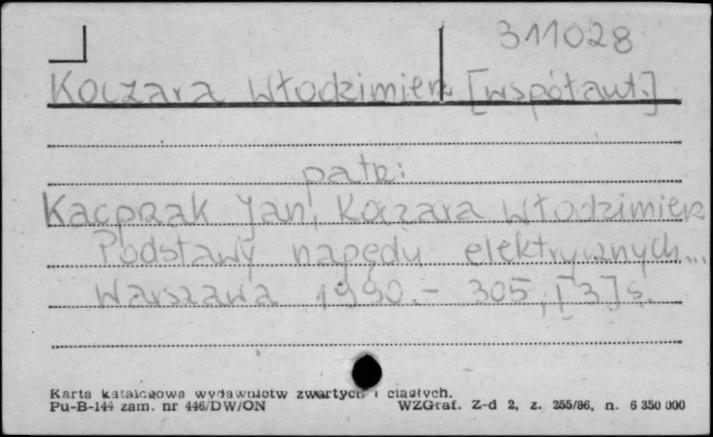 311028
Koczara Włodzimierz [współaut.]
patrz:
Kacprzak Jan, Koczara Włodzimierz
Podstawy napędu elektrycznych...
Warszawa 1990.- 305, [3] s.
Karta katalogowa wydawnictw zwartych i ciągłych.
Pu-B-144 zam. nr 446/DW/ON WZGraf. Z-d 2, z. 255/86, n. 6 350 000